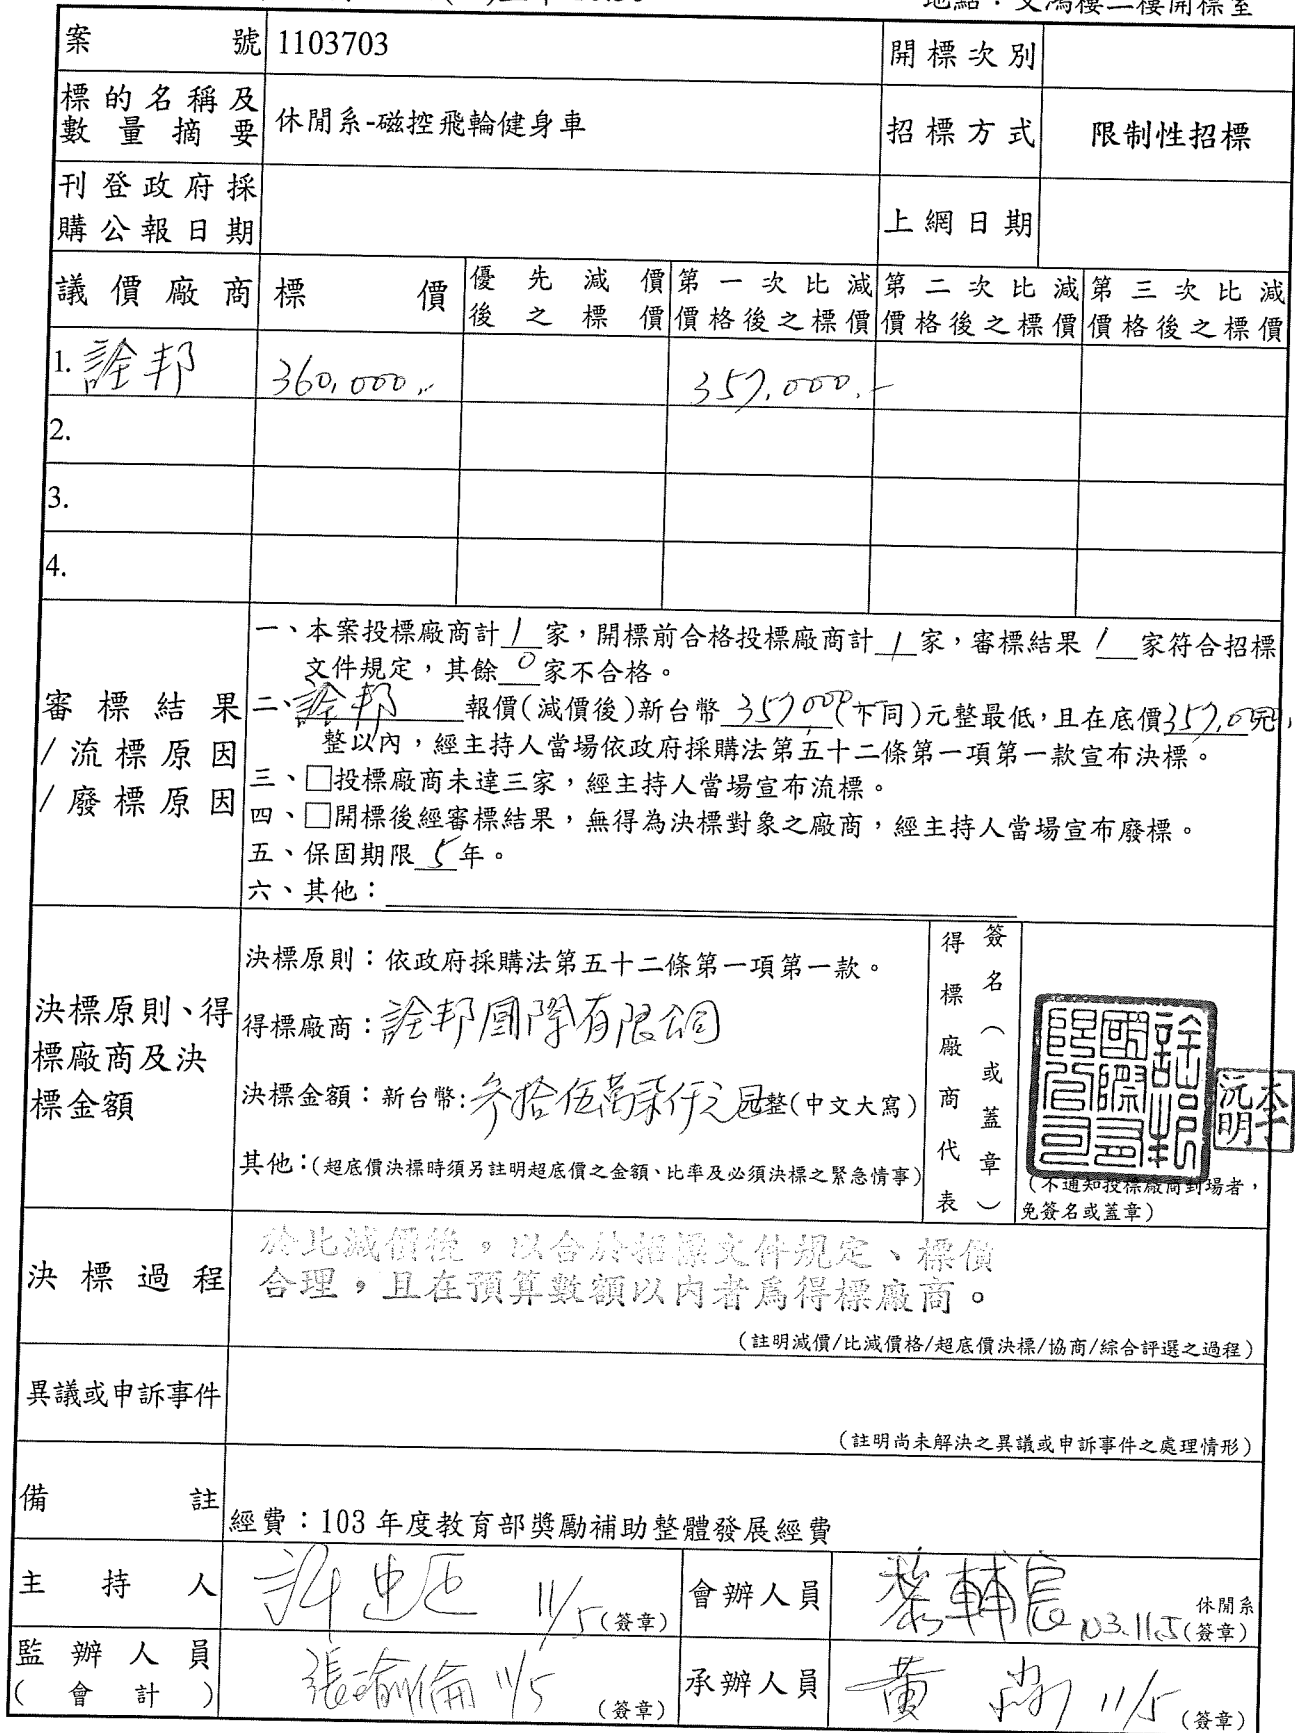 地點：文鴻樓二樓開標室
案號 1103703 開標次別
標的名稱及數量摘要 休閒系-磁控飛輪健身車 招標方式 限制性招標
刊登政府採購公報日期 上網日期
議價廠商 標價 優先減價後之標價 第一次比減價格後之標價 第二次比減價格後之標價 第三次比減價格後之標價
1. 詮邦 360,000.- 357,000.-
2.
3.
4.
審標結果/流標原因/廢標原因
一、本案投標廠商計1家，開標前合格投標廠商計1家，審標結果1家符合招標
文件規定，其餘0家不合格。
二、詮邦報價(減價後)新台幣357,000(下同)元整最低，且在底價357,000元
整以內，經主持人當場依政府採購法第五十二條第一項第一款宣布決標。
三、□投標廠商未達三家，經主持人當場宣布流標。
四、□開標後經審標結果，無得為決標對象之廠商，經主持人當場宣布廢標。
五、保固期限5年。
六、其他：
決標原則、得標廠商及決標金額
決標原則：依政府採購法第五十二條第一項第一款。
得標廠商：詮邦國際有限公司
決標金額：新台幣：參拾伍萬柒仟元整(中文大寫)
其他：(超底價決標時須另註明超底價之金額、比率及必須決標之緊急情事)
得標廠商代表簽名(或蓋章)
詮邦國際有限公司
李沅明
(不通知投標廠商到場者，
免簽名或蓋章)
決標過程
於比減價後，以合於招標文件規定、標價
合理，且在預算數額以內者為得標廠商。
(註明減價/比減價格/超底價決標/協商/綜合評選之過程)
異議或申訴事件
(註明尚未解決之異議或申訴事件之處理情形)
備註 經費：103 年度教育部獎勵補助整體發展經費
主持人 11/5 (簽章) 會辦人員 輔宸 休閒系 103.11.5 (簽章)
監辦人員(會計) 張瑜倫 11/5 (簽章) 承辦人員 黃 11/5 (簽章)